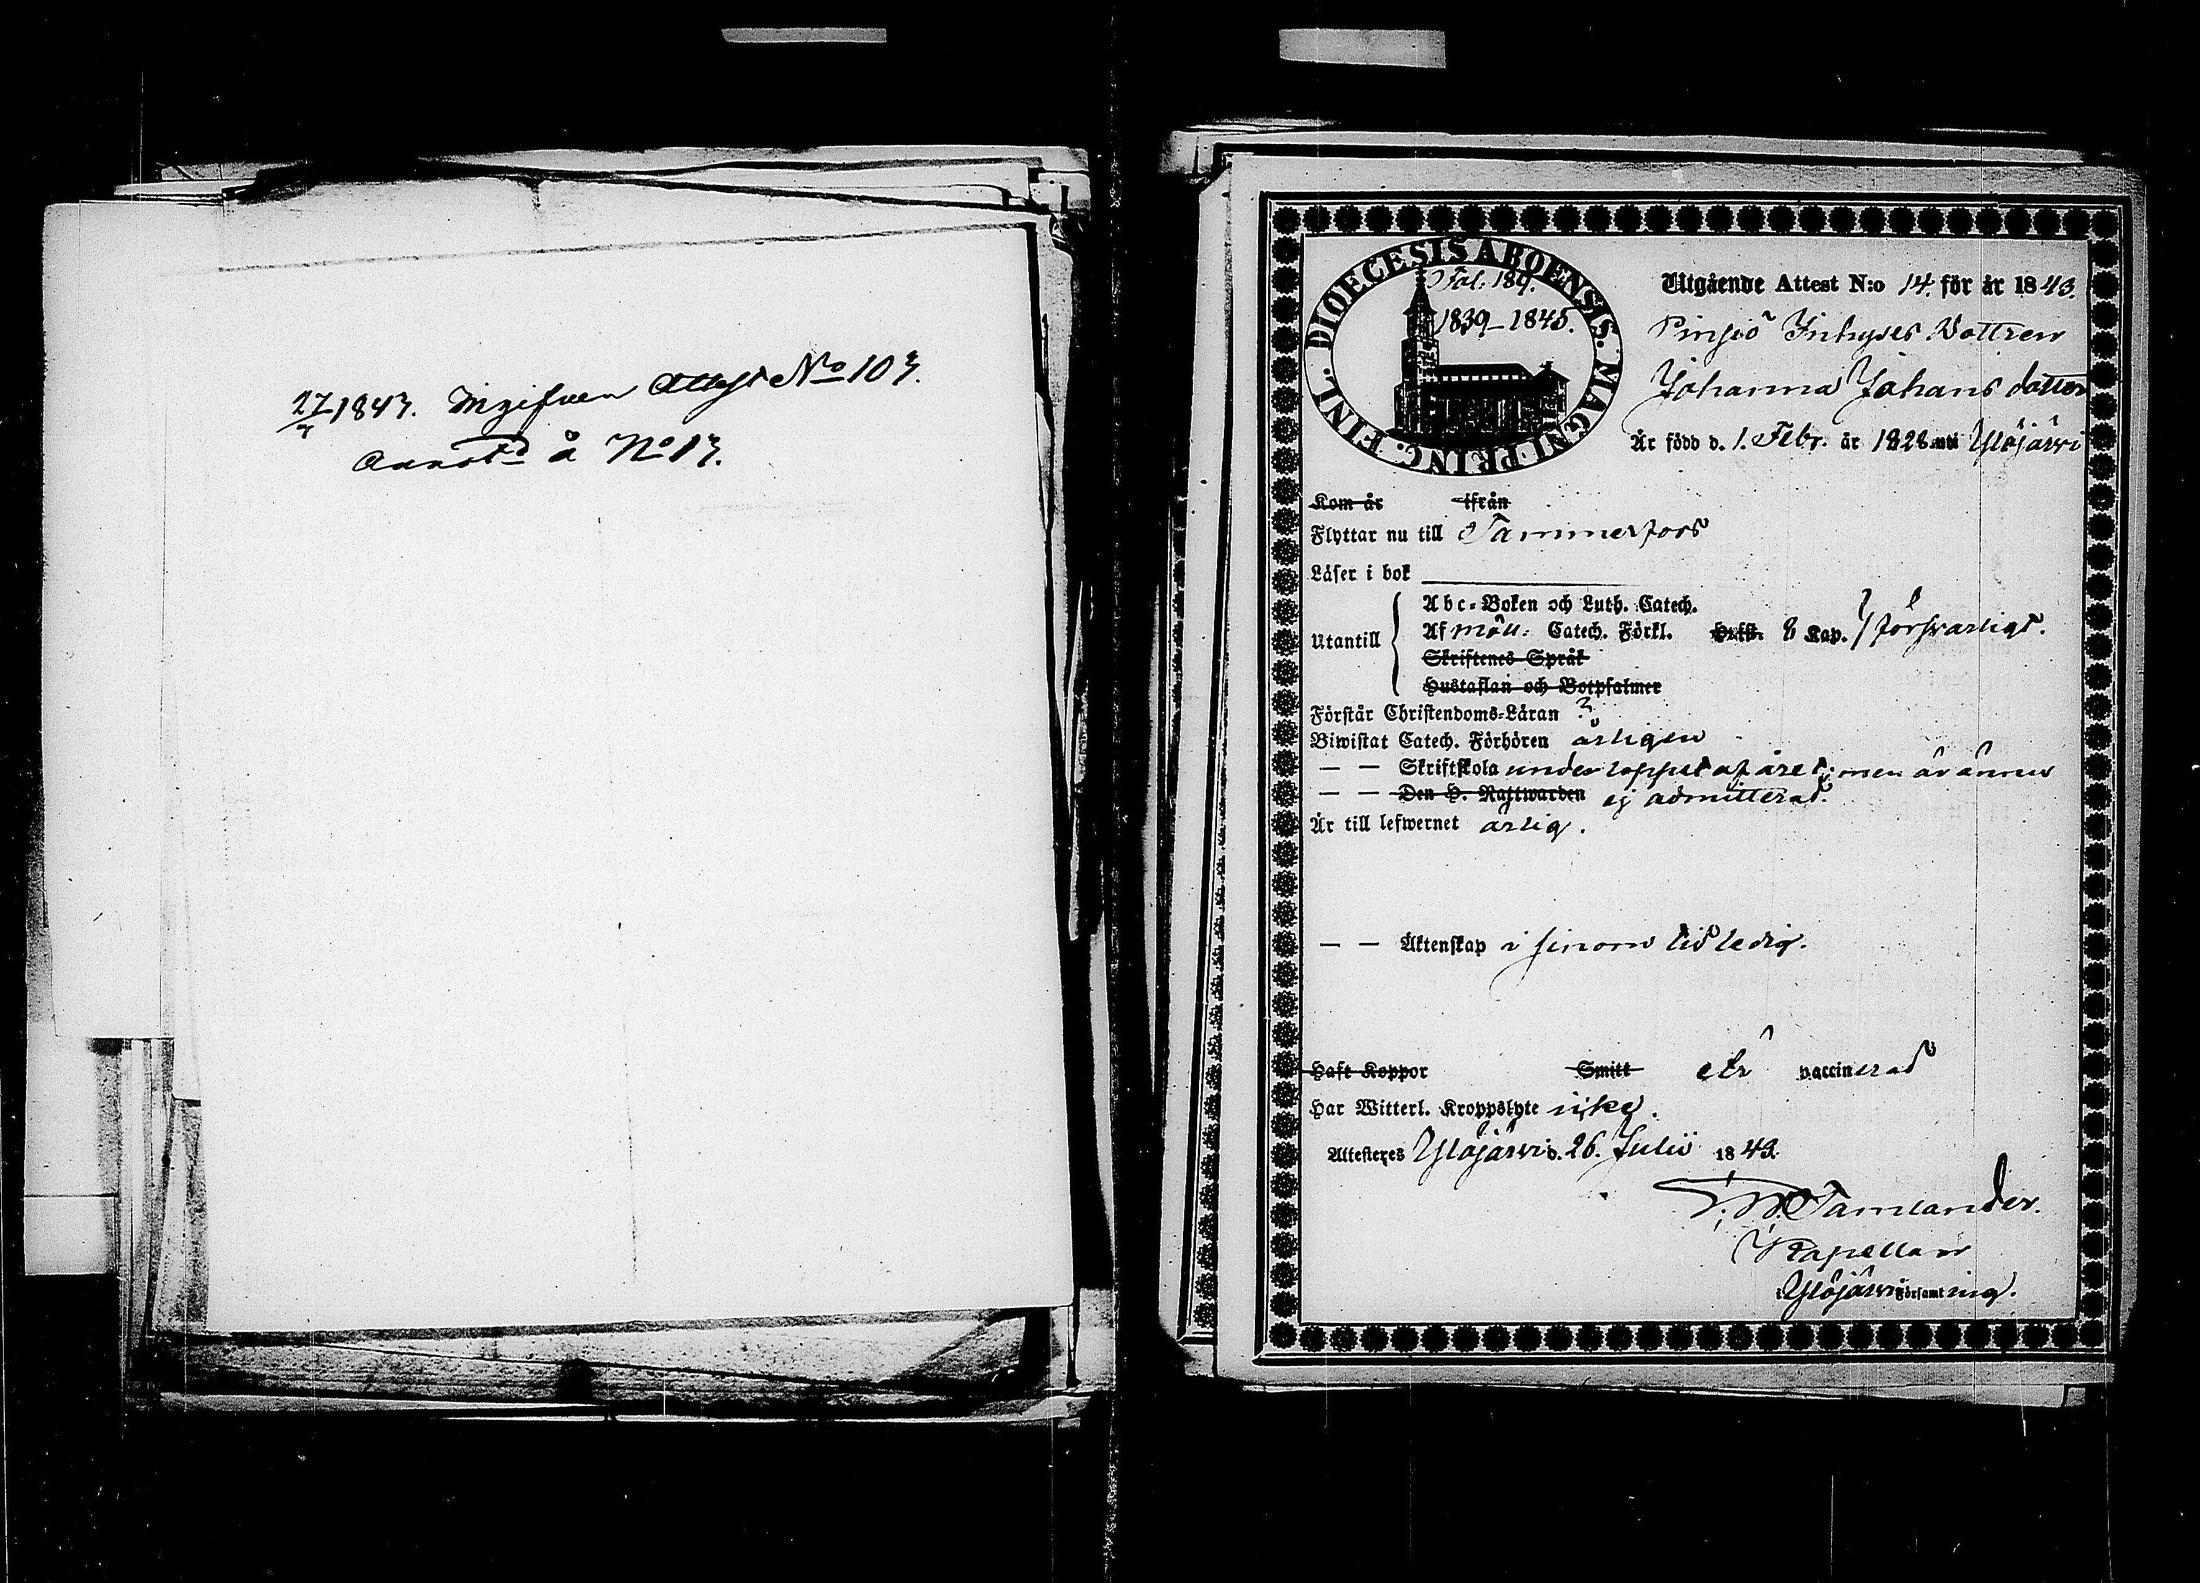 27/7 1843. Ingifven Attest No 103.
Annotd å No 13.
DIOECESIS ABOENSIS. MAGNI PRINC. FINL.
Fol. 189.
1839–1845.
Utgående Attest N:o 14. för år 1843.
Pinsiö Inhyses Dottren
Johanna Johans dotter
Är född d. 1. Febr. år 1828 uti Ylöjärvi
Kom år ifrån
Flyttar nu till Tammerfors
Läser i bok
Abc-Boken och Luth. Catech.
Utantill Af möll: Catech. Förkl. Hufst. 8 Kap. försvarligt.
Skriftenes Språk
Hustaflan och Botpsalmer
Förstår Christendoms-Läran ?
Biwistat Catech. Förhören årligen
— — Skriftskola under loppet af året; men är ännu
— — Den H. Nattwarden ej admitterad.
Är till lefwernet ärlig.
— — Äktenskap i sinom tid ledig.
Haft Koppor Smitt Är vaccinerad
Har Witterl. Kroppslyte icke.
Attesteres Ylöjärvi d. 26. Julii 1843.
Tamlander.
Kapellan
i Ylöjärvi Församlning.